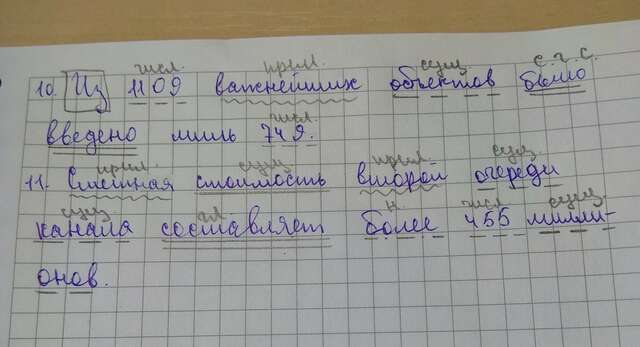 числ. прил. сущ. с.г.с.
10. Из 1109 важнейших объектов было
числ.
введено лишь 749.
прил. сущ. прил. сущ.
11. Сметная стоимость второй очереди
сущ гл н числ сущ.
канала составляет более 455 милли-
онов.